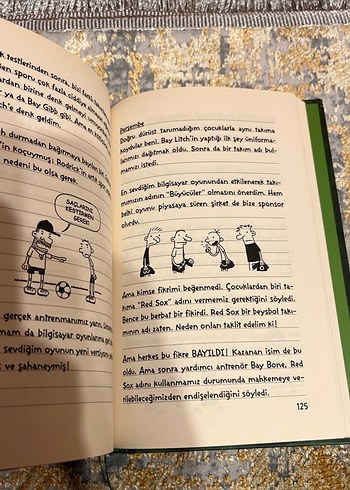 k testlerinden sonra, bizi farklı
en sporu çok fazla ciddiye alma
lardan birine denk gelmeyi umuyor
r ya da Bay Gibb gibi. Ama en
tch'e denk geldim.
h durmadan bağırmaya bayılan biri.
'in koçuymuş; Rodrick'in artık spor
nedeni bu olsa gerek.
SAÇLARINI
KESTİRMEN
GEREK!
gerçek antrenmanımız yarın.
mam da bilgisayar oyunlarına
sevdiğim oyunun yeni versiyonu
ve şahaneymiş!
Perşembe
Doğru dürüst tanımadığım çocuklarla aynı takıma
koydular beni. Bay Litch'in yaptığı ilk şey üniforma-
larımızı dağıtmak oldu. Sonra da bir takım adı bul-
mamızı istedi.
En sevdiğim bilgisayar oyunundan etkilenerek takı-
mımızın adının "Büyücüler" olmasını önerdim. Hem
belki oyunu piyasaya süren şirket de bize sponsor
olurdu.
Ama kimse fikrimi beğenmedi. Çocuklardan biri ta-
kıma "Red Sox" adını vermemiz gerektiğini söyledi.
Bence bu berbat bir fikirdi. Red Sox bir beysbol takı-
mının adı zaten. Neden onları taklit edelim ki!
Ama herkes bu fikre BAYILDI! Kazanan isim de bu
oldu. Ama sonra yardımcı antrenör Bay Bone, Red
Sox adını kullanmamız durumunda mahkemeye ve-
rilebileceğimizden endişelendiğini söyledi.
125